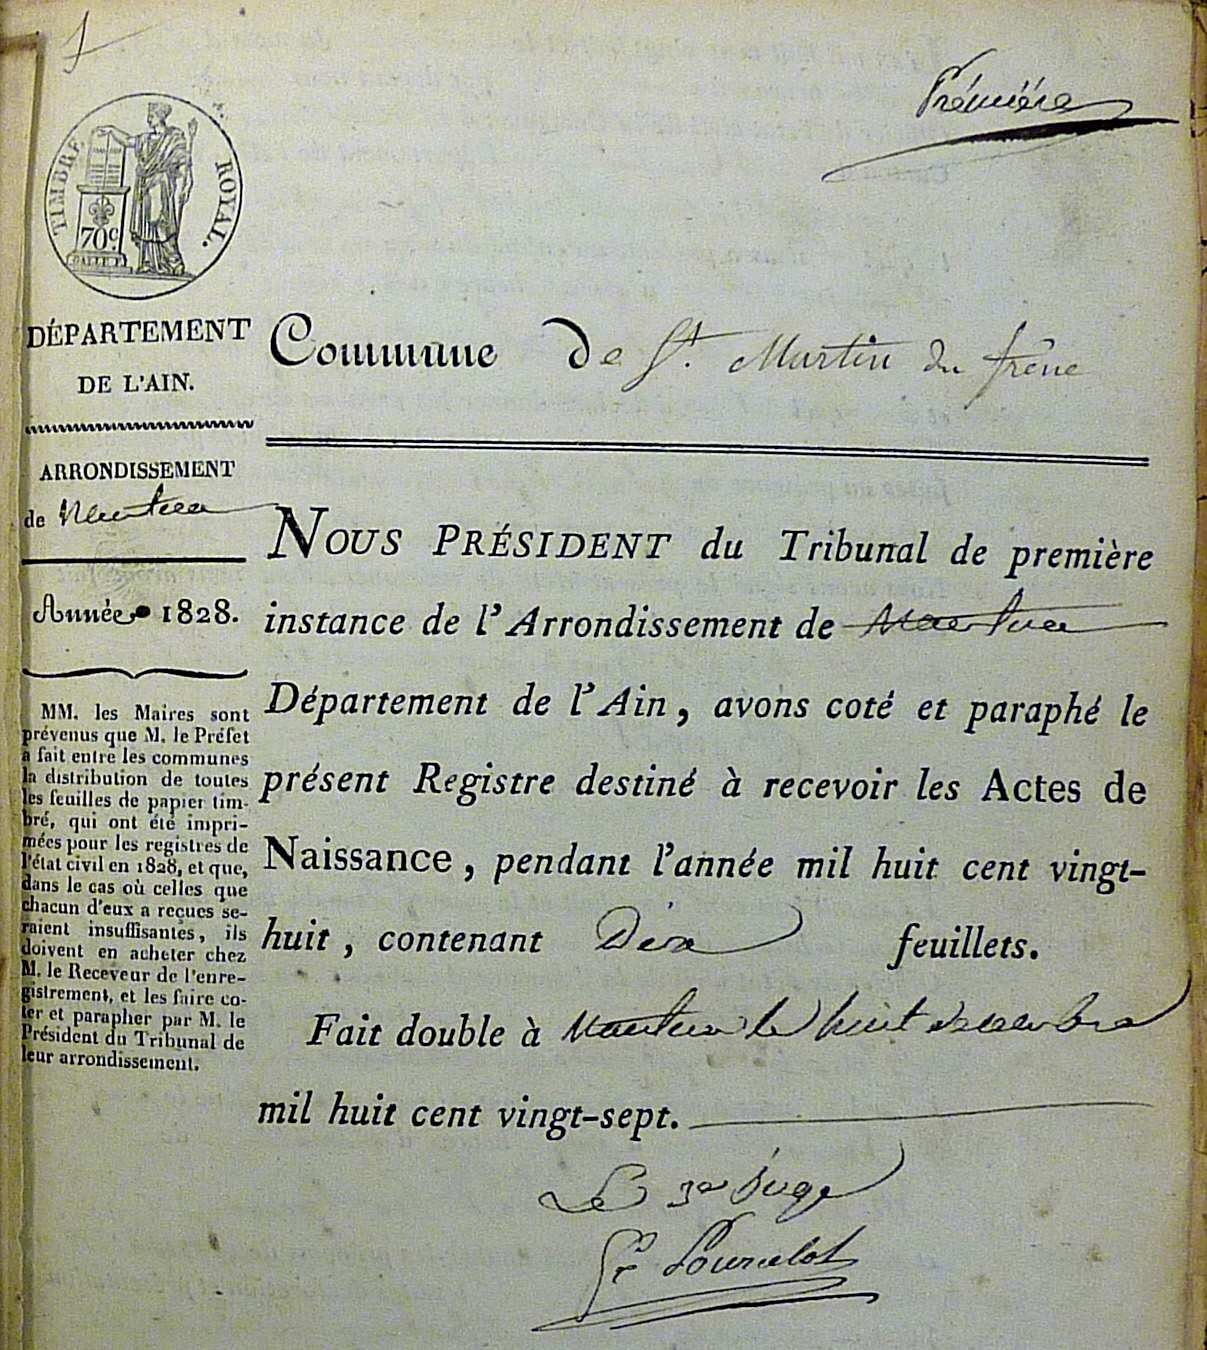 1
Première
TIMBRE ROYAL.
70c
DÉPARTEMENT
DE L'AIN.
Commune De St. Martin du frêne
ARRONDISSEMENT
de Nantua
Année 1828.
MM. les Maires sont
prévenus que M. le Préfet
a fait entre les communes
la distribution de toutes
les feuilles de papier tim-
bré, qui ont été impri-
mées pour les registres de
l'état civil en 1828, et que,
dans le cas où celles que
chacun d'eux a reçues se-
raient insuffisantes, ils
doivent en acheter chez
M. le Receveur de l'enre-
gistrement, et les faire co-
ter et parapher par M. le
Président du Tribunal de
leur arrondissement.
NOUS PRÉSIDENT du Tribunal de première
instance de l'Arrondissement de Nantua
Département de l'Ain, avons coté et paraphé le
présent Registre destiné à recevoir les Actes de
Naissance, pendant l'année mil huit cent vingt-
huit, contenant Dix feuillets.
Fait double à Nantua le huit décembre
mil huit cent vingt-sept.
Le Juge